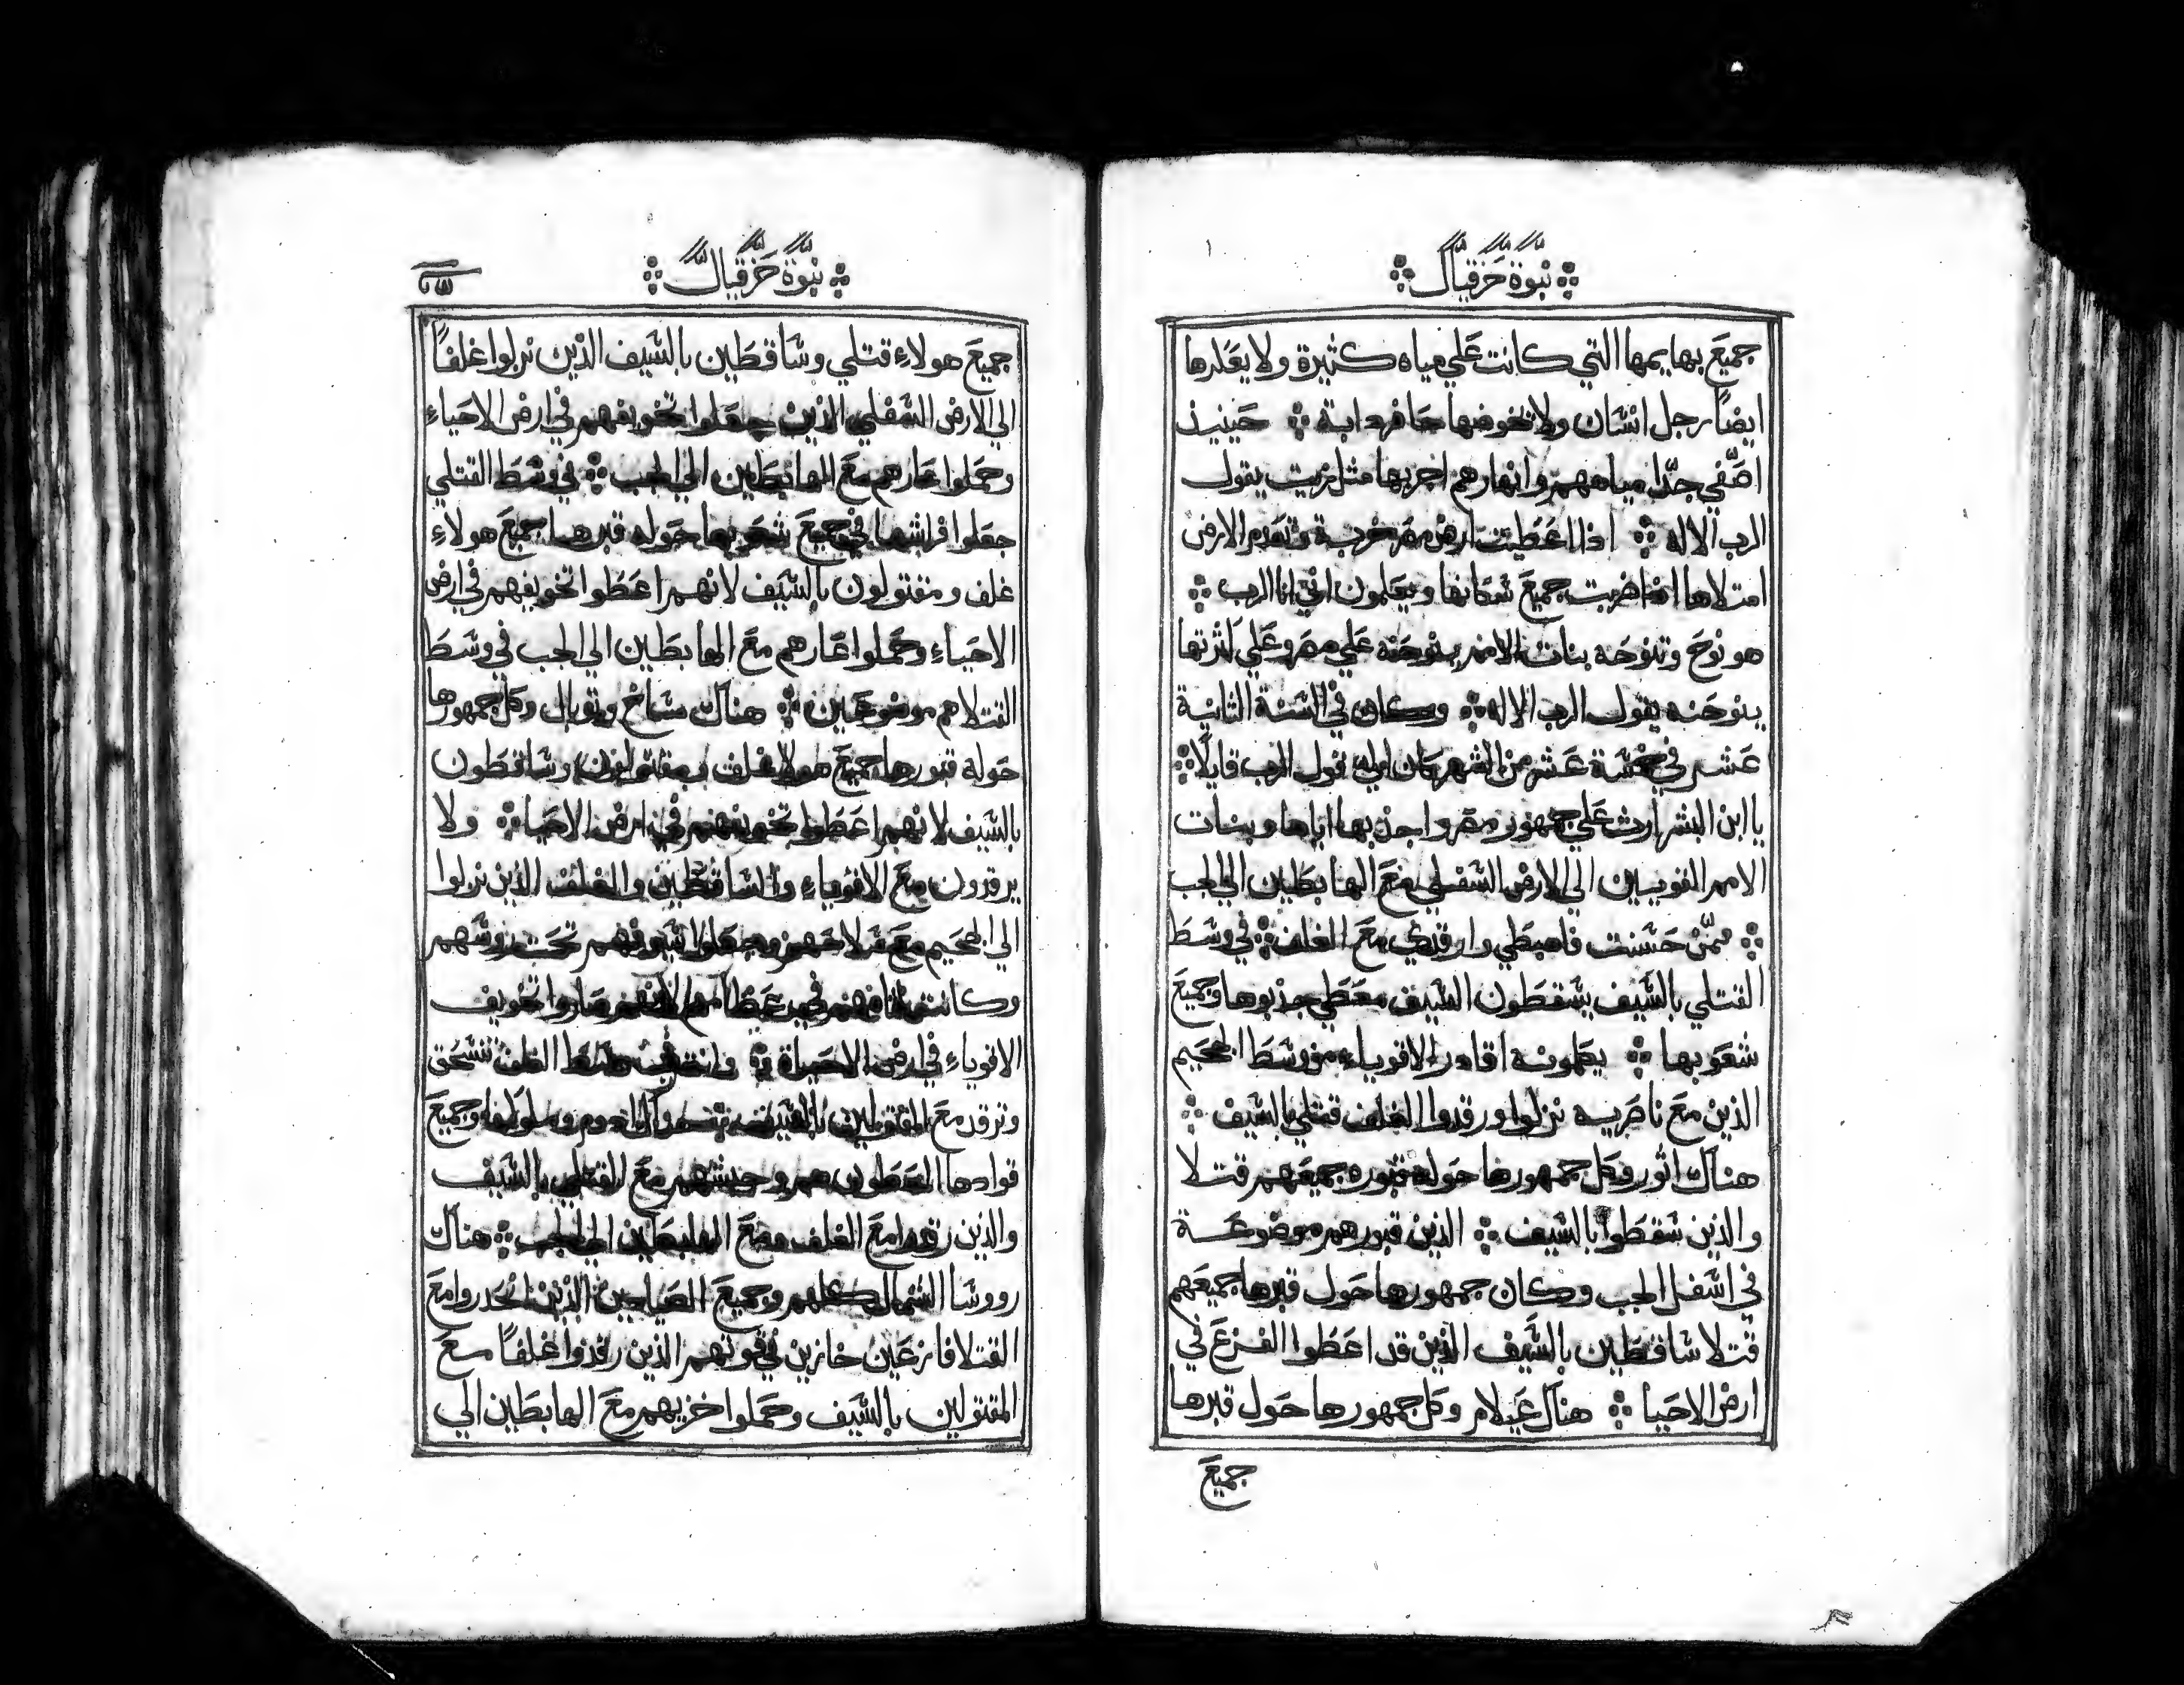 نبوة حزقيال
جميع بهايمها التي كانت علي مياه كثيرة ولا يعكرها
ايضا رجل انسان ولا تخوضها حافر دابة ❖ حينيذ
اصفي جدا مياههم وانهارهم اجريها مثل زيت يقول
الرب الاله ❖ اذا اعطيت ارض مصر خربة وتعدم الارض
امتلاها اذا ضربت جميع سكانها ويعلمون اني انا الرب ❖
هو نوح وتنوحه بنات الامم بنوحنه علي مصر وعلي كثرتها
ينوحنه يقول الرب الاله ❖ وكان في السنة الثانية
عشر في خمسة عشر من الشهر كان الي قول الرب قايلا ❖
يا ابن البشر ارث علي جمهور مصر واجذبها اياها وبنات
الامم القويين الي الارض السفلي مع الهابطين الي الجب
❖ ممن حسنت فاهبطي وارقدي مع الغلف ❖ في وسط
القتلي بالسيف يسقطون السيف معطي جذبوها وجميع
شعوبها ❖ يكلمونه اقادر الاقوياء من وسط الجحيم
الذين مع ناصريه نزلوا ورقدوا الغلف قتلي بالسيف ❖
هناك اثور وكل جمهورها حوله قبوره جميعهم قتلا
والذين سقطوا بالسيف ❖ الذين قبورهم موضوعة
في اسفل الجب وكان جمهورها حول قبرها جميعهم
قتلا ساقطين بالسيف الذين قد اعطوا الفزع في
ارض الاحيا ❖ هناك عيلام وكل جمهورها حول قبرها
جميع
نبوة حزقيال
جميع هولاء قتلي وساقطين بالسيف الذين نزلوا غلفا
الي الارض السفلي الذين جعلوا تخويفهم في ارض الاحياء
وحملوا عارهم مع الهابطين الي الجب ❖ في وسط القتلي
جعلوا فراشها في جميع شعوبها حوله قبرها جميع هولاء
غلف ومقتولون بالسيف لانهم اعطوا تخويفهم في ارض
الاحياء وحملوا عارهم مع الهابطين الي الجب في وسط
القتلا هم موضوعين ❖ هناك ماشخ وتوبال وكل جمهورها
حوله قبورها جميع هولا غلف مقتولون وساقطون
بالسيف لانهم اعطوا تخويفهم في ارض الاحيا ❖ ولا
يرقدون مع الاقوياء والساقطين والغلف الذين نزلوا
الي الجحيم مع سلاحهم وجعلوا سيوفهم تحت روسهم
وكانت اثامهم في عظامهم لانهم صاروا تخويف
الاقوياء في ارض الاحياة ❖ وانت في وسط الغلف تنسحق
وترقد مع المقتولين بالسيف هناك ادوم وملوكها وجميع
قوادها المعطون هم وجيشهم مع القتلي بالسيف
والذين رقدوا مع الغلف ومع الهابطين الي الجب ❖ هناك
رووسا الشمال كلهم وجميع الصيادين الذين انحدروا مع
القتلا فازعين خازين في قوتهم الذين رقدوا غلفا مع
المقتولين بالسيف وحملوا خزيهم مع الهابطين الي